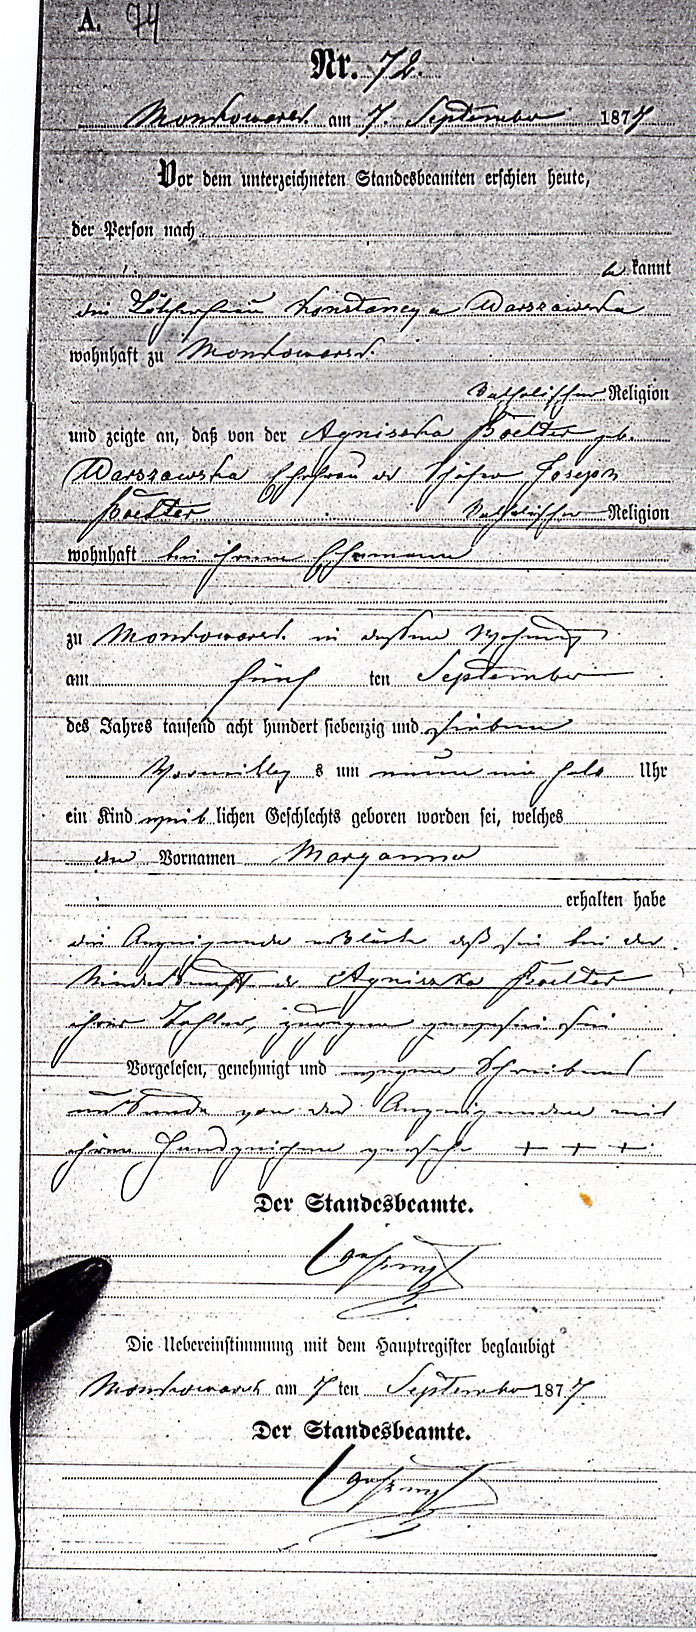 A. 94
Nr. 72.
Monkowarsk am 7. September 1877
Vor dem unterzeichneten Standesbeamten erschien heute,
der Person nach
be kannt
die Konstancya Warszawska
wohnhaft zu Monkowarsk.
katholischer Religion
und zeigte an, daß von der Agniszka Boelter geb.
Warszawska Ehefrau des Joseph
Boelter katholischer Religion
wohnhaft bei ihrem Ehemanne
zu Monkowarsk. in dessen Wohnung
am fünf ten September
des Jahres tausend acht hundert siebenzig und sieben
Vormittag s um neun ein halb Uhr
ein Kind weib lichen Geschlechts geboren worden sei, welches
den Vornamen Maryanna
erhalten habe
die Anzeigende erklärte daß sie bei der
Niederkunft der Agniszka Boelter
ihrer Tochter, zugegen gewesen sei
Vorgelesen, genehmigt und wegen Schreibens
unkunde von der Anzeigenden mit
ihrem Handzeichen versehen + + +
Der Standesbeamte.
Die Uebereinstimmung mit dem Hauptregister beglaubigt
Monkowarsk am 7 ten September 1877.
Der Standesbeamte.